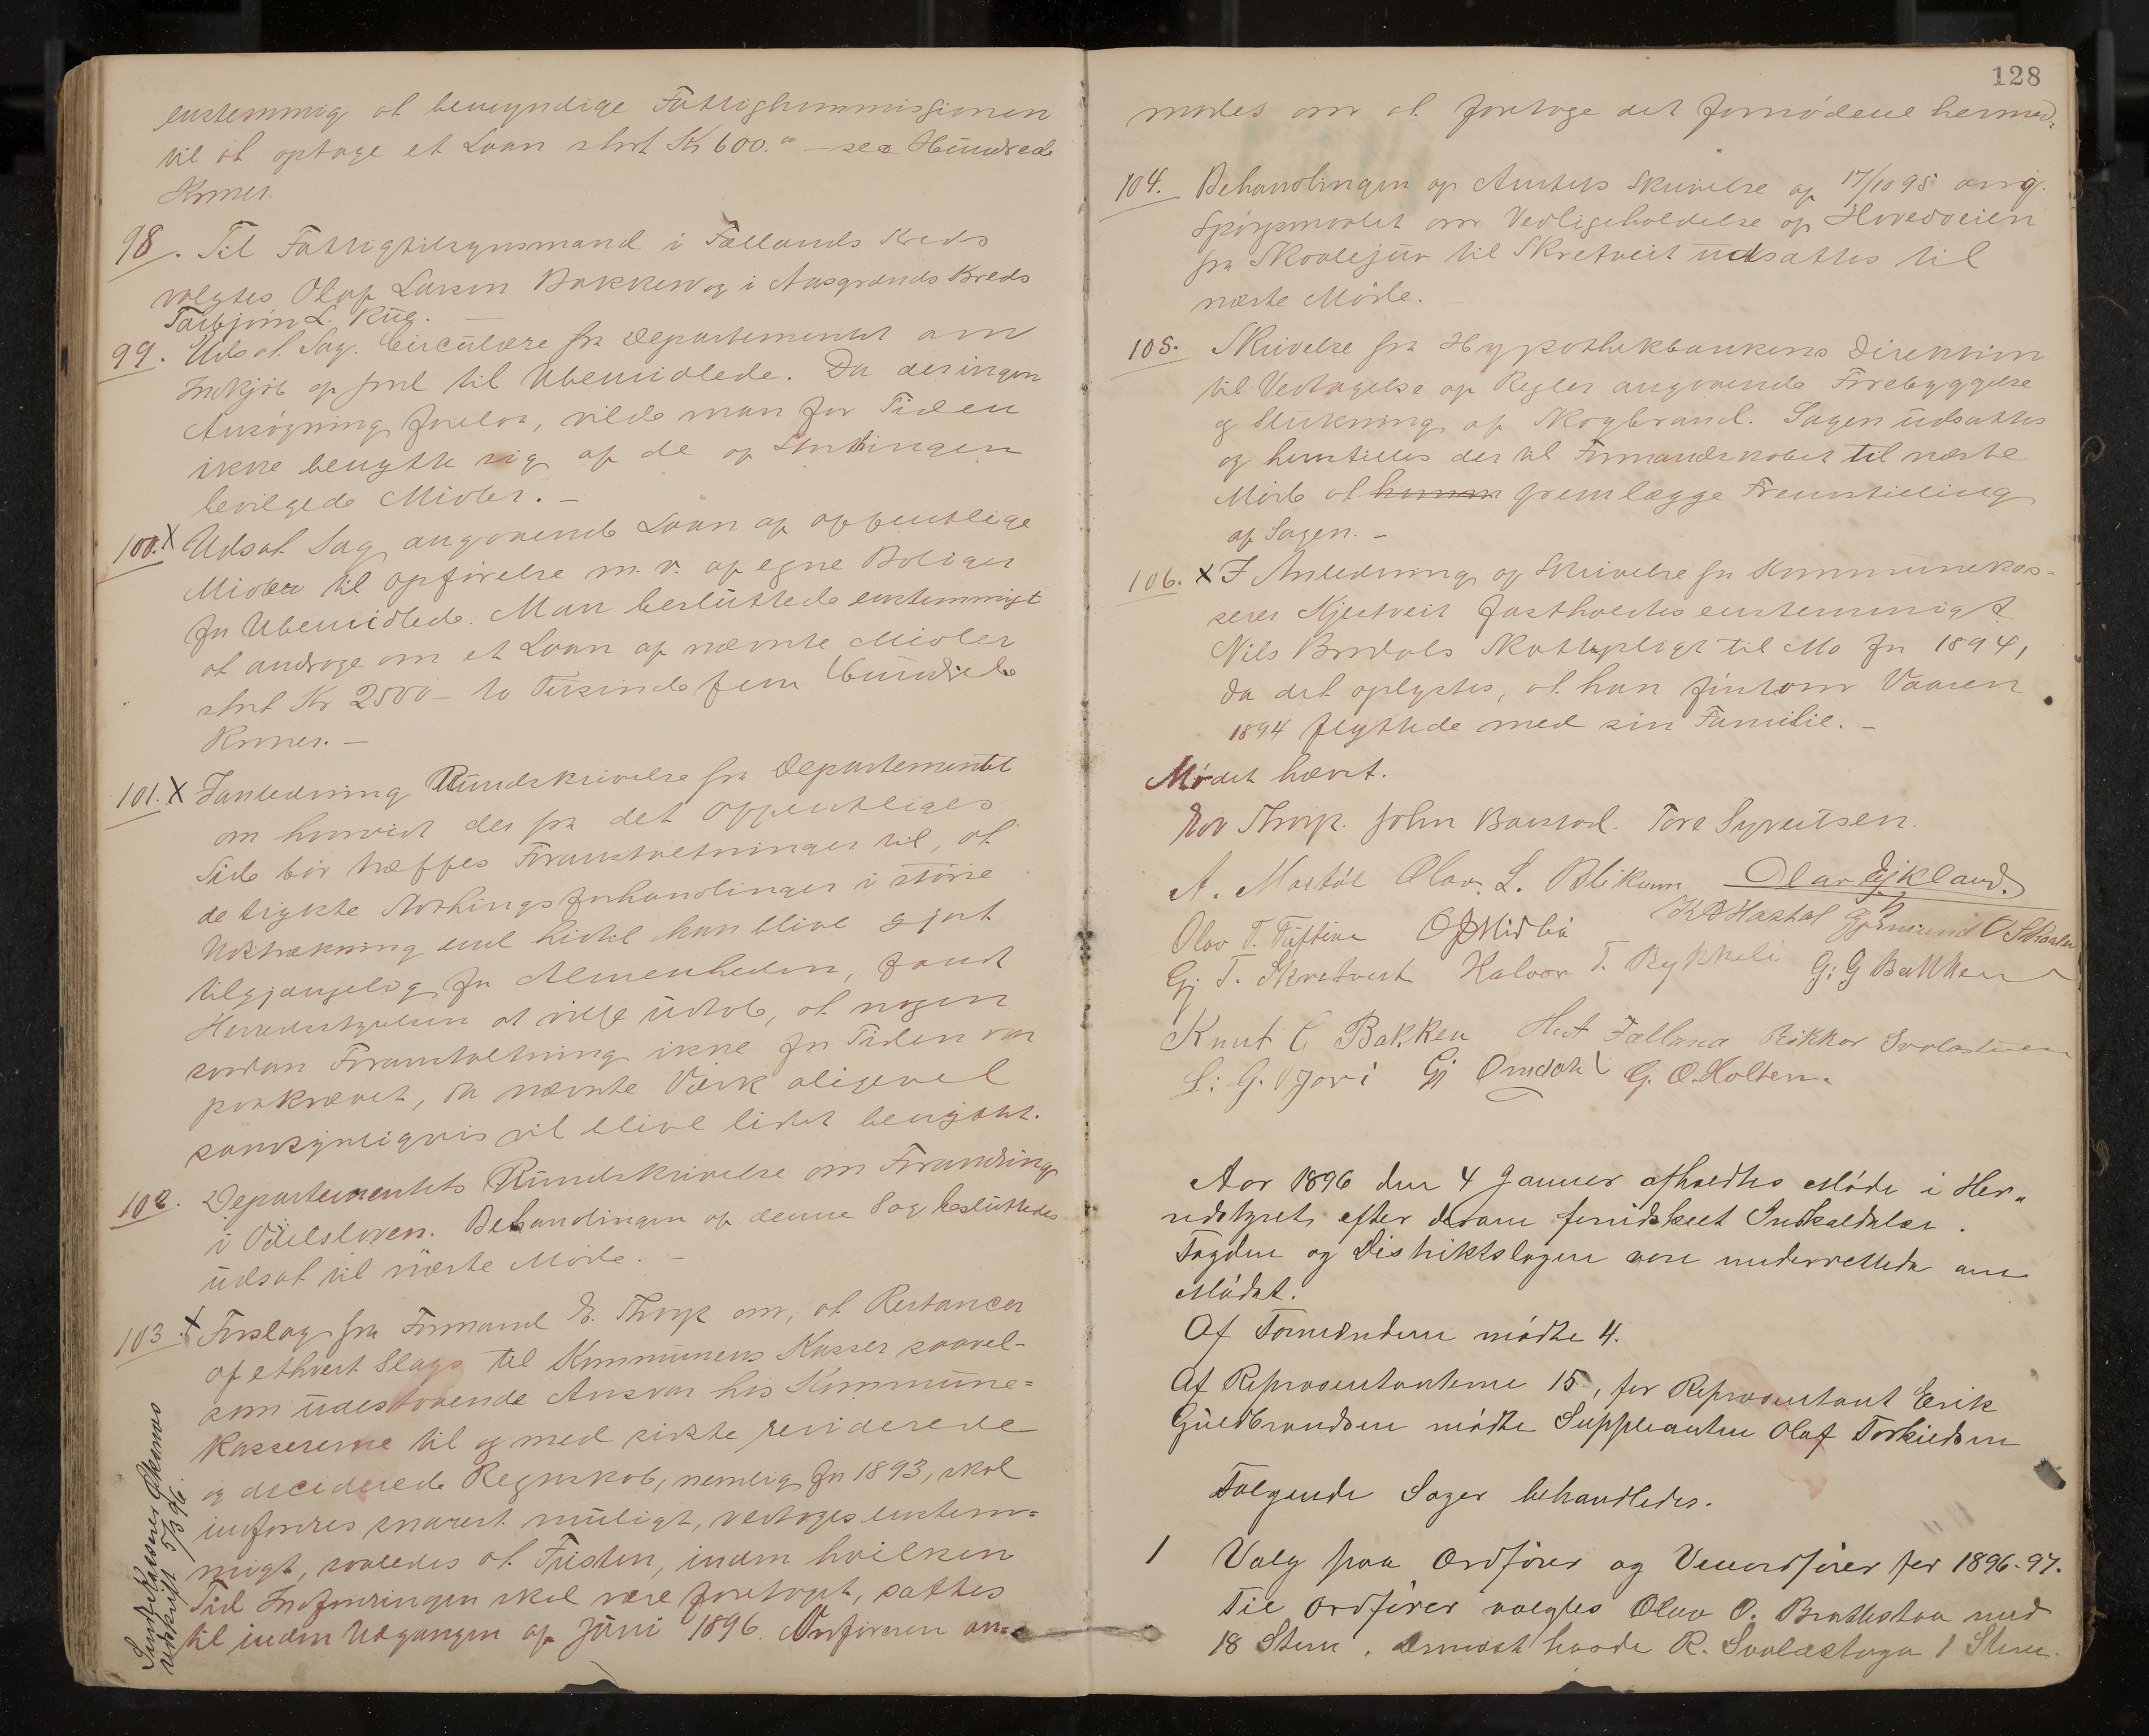 enstemmig at bemyndige Fattigkommissionen
til at optage et Laan stort Kr 600.00 – sex Hundrede
Kroner.
98. Til Fattigtilsynsmand i Fællands Kreds
valgtes Olaf Larsen Bakken og i Aasgrands Kreds
Torbjørn L. Rue.
99. Udsat Sag. Circulære fra Departementet om
Indkjøb af Jord til Ubemidlede. Da der ingen
Ansøgning forelaa, vilde man for Tiden
ikke benytte sig af de af Storthinget
bevilgede Midler. –
100. X Udsat Sag angaaende Laan af offentlige
Midler til Opførelse m. v. af egne Boliger
for Ubemidlede. Man besluttede enstemmigt
at andrage om et Laan af nævnte Midler
stort Kr 2500 – to Tusinde fem Hundrede
Kroner. –
101. X I anledning Rundskrivelse fra Departementet
om hvorvidt der fra det Offentliges
Side bør træffes Foranstaltninger til, at
de trykte Storthingsforhandlinger i større
Udstrækning end hidtil kan blive gjort
tilgjængelig for Almenheden, fandt
Herredsstyrelsen at ville udtale, at nogen
saadan Foranstaltning ikke for Tiden var
paakrævet, da nævnte Værk aligevel
sandsynligvis vil blive lidet benyttet.
102. Departementets Rundskrivelse om Forandring
i Odelsloven. Behandlingen af denne Sag besluttedes
udsat til næste Møde. –
103. X Forslag fra Formand E. Thorp om, at Restancer
af ethvert Slags til Kommunens Kasser saavel-
som udestaaende Ansvar hos Kommune=
kassererne til og med sidste reviderede
og deciderede Regnskab, nemlig for 1893, skal
indfordres snarest muligt, vedtoges enstem=
migt, saaledes at Fristen, inden hvilken
Tid Indfordringen skal være foretaget, sattes
til inden Udgangen af Juni 1896. Ordføreren an=
udskrift 5/3 96.
128
modes om at foretage det fornødene hermed.
104. Behandlingen af Amtets Skrivelse af 17/10 95 ang.
Spørgsmaalet om Vedligeholdelse af Hovedveien
fra Skovlejur til Skretveit udsattes til
næste Møde. –
105. Skrivelse fra Hypothekbankens Direktion
til Vedtagelse af Regler angaaende Forebyggelse
og Slukning af Skogbrand. Sagen udsattes
og henstilles der til Formandskabet til næste
Møde at fremlægge Fremstilling
af Sagen. –
106. X I Anledning af Skrivelse fra Kommunekas=
serer Kjertveit fastholdtes enstemmigt
Nils Brudals Skattepligt til Mo for 1894,
da det oplystes, at han først om Vaaren
1894 flyttede med sin Familie. –
Mødet hævet.
Thorp. John Baustad. Tore Syvertsen.
A. Mostøl Olav. L. Blikum Olav Eikland.
Olav T. Tuftin O J Midbø
Gj T. Skretveit Halvor T. Rykkeli G. G Bakken
Knut C Bakken Fælland Rikkar Svalastuen
L. G. Gj Omdal G. O. Holten.
Aar 1896 den 4 Januar afholdtes Møde i Her„
redstyret efter derom forudskeet Indkaldelse.
Fogden og Distriktslægen vare underrettede om
Mødet.
Af Formændene mødte 4.
Af Repræsentanterne 15, for Repræsentant Erik
Guldbrandsen mødte Suppleanten Olaf Torkildsen
Følgende Sager behandledes.
1 Valg paa Ordfører og Viceordfører for 1896-97.
Til Ordfører valgtes Olav O. Brattestaa med
18 Stem. Dernæst havde R. Svalastoga 1 Stem.